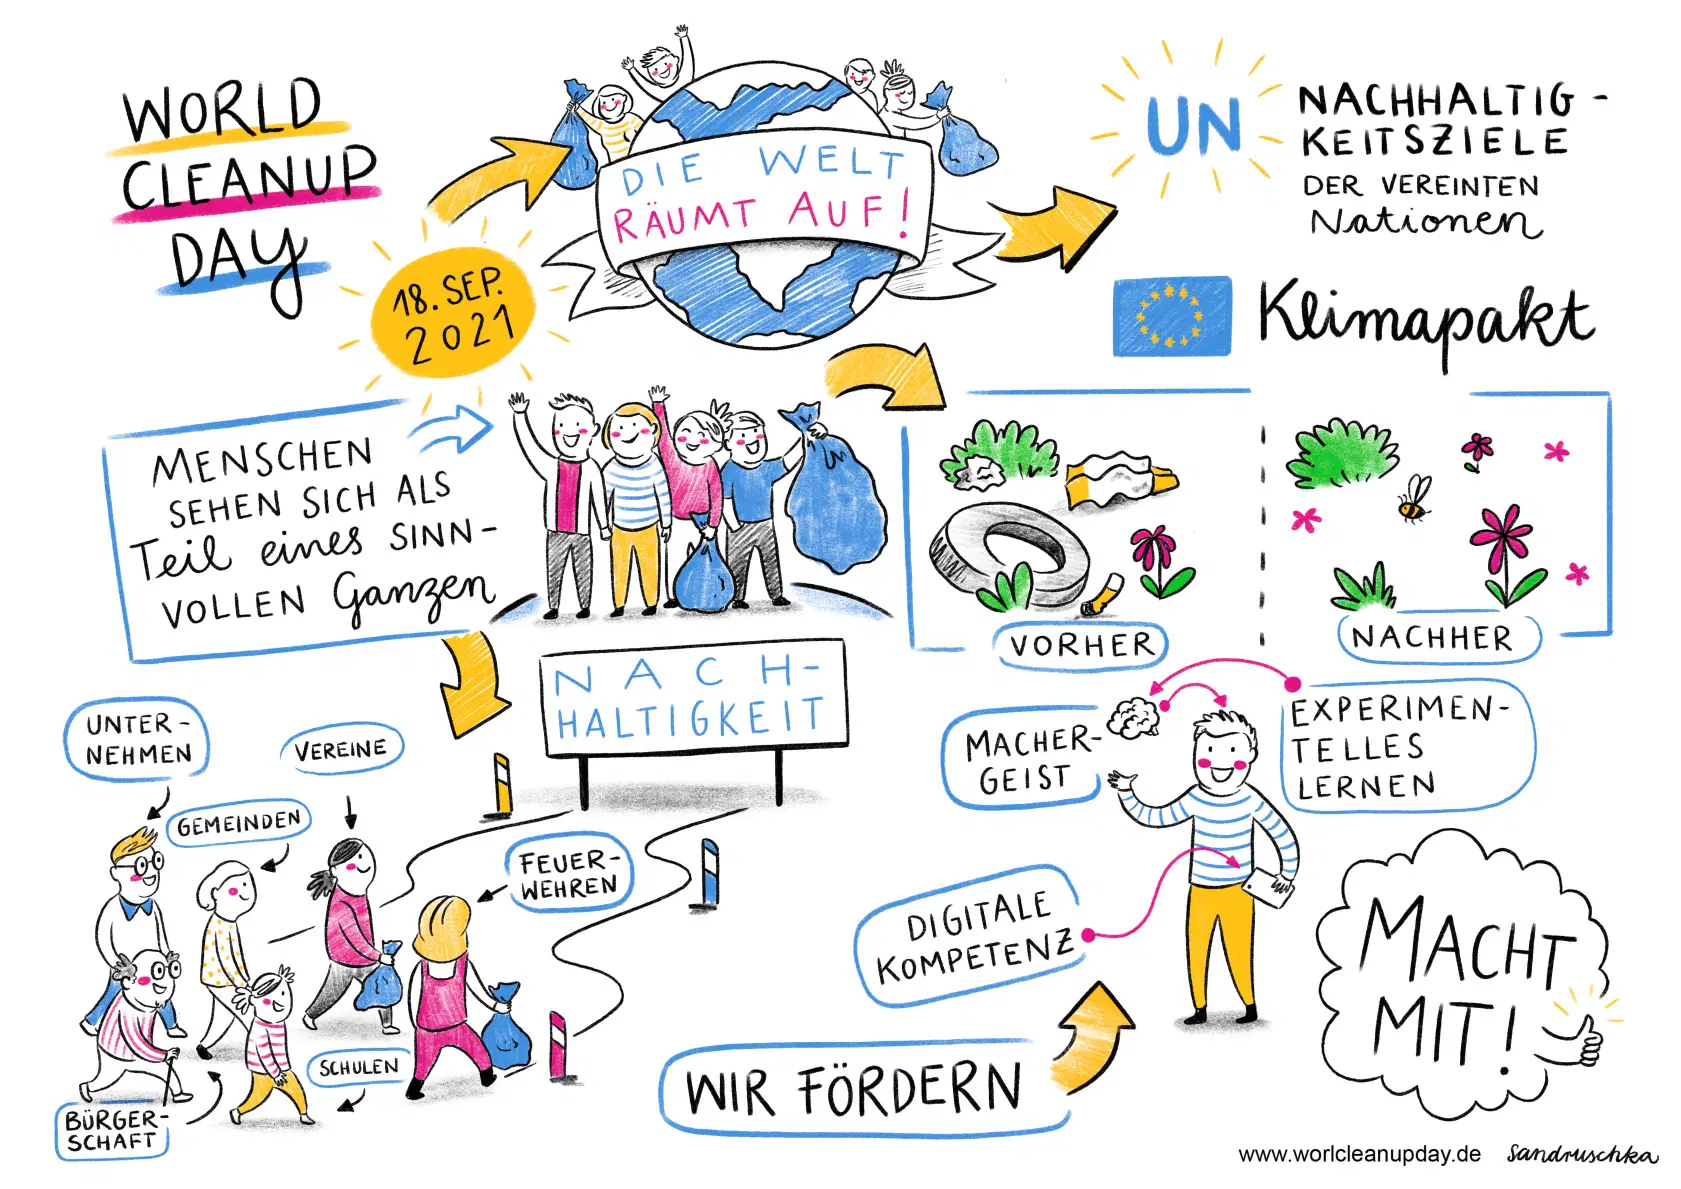 WORLD
CLEANUP
DAY
18. SEP.
2021
DIE WELT
RÄUMT AUF!
UN
NACHHALTIG-
KEITSZIELE
DER VEREINTEN
Nationen
Klimapakt
MENSCHEN
SEHEN SICH ALS
Teil eines SINN-
VOLLEN Ganzen
VORHER
NACHHER
NACH-
HALTIGKEIT
UNTER-
NEHMEN
VEREINE
GEMEINDEN
FEUER-
WEHREN
SCHULEN
BÜRGER-
SCHAFT
MACHER-
GEIST
EXPERIMEN-
TELLES
LERNEN
DIGITALE
KOMPETENZ
WIR FÖRDERN
MACHT
MIT!
www.worlcleanupday.de
Sandruschka